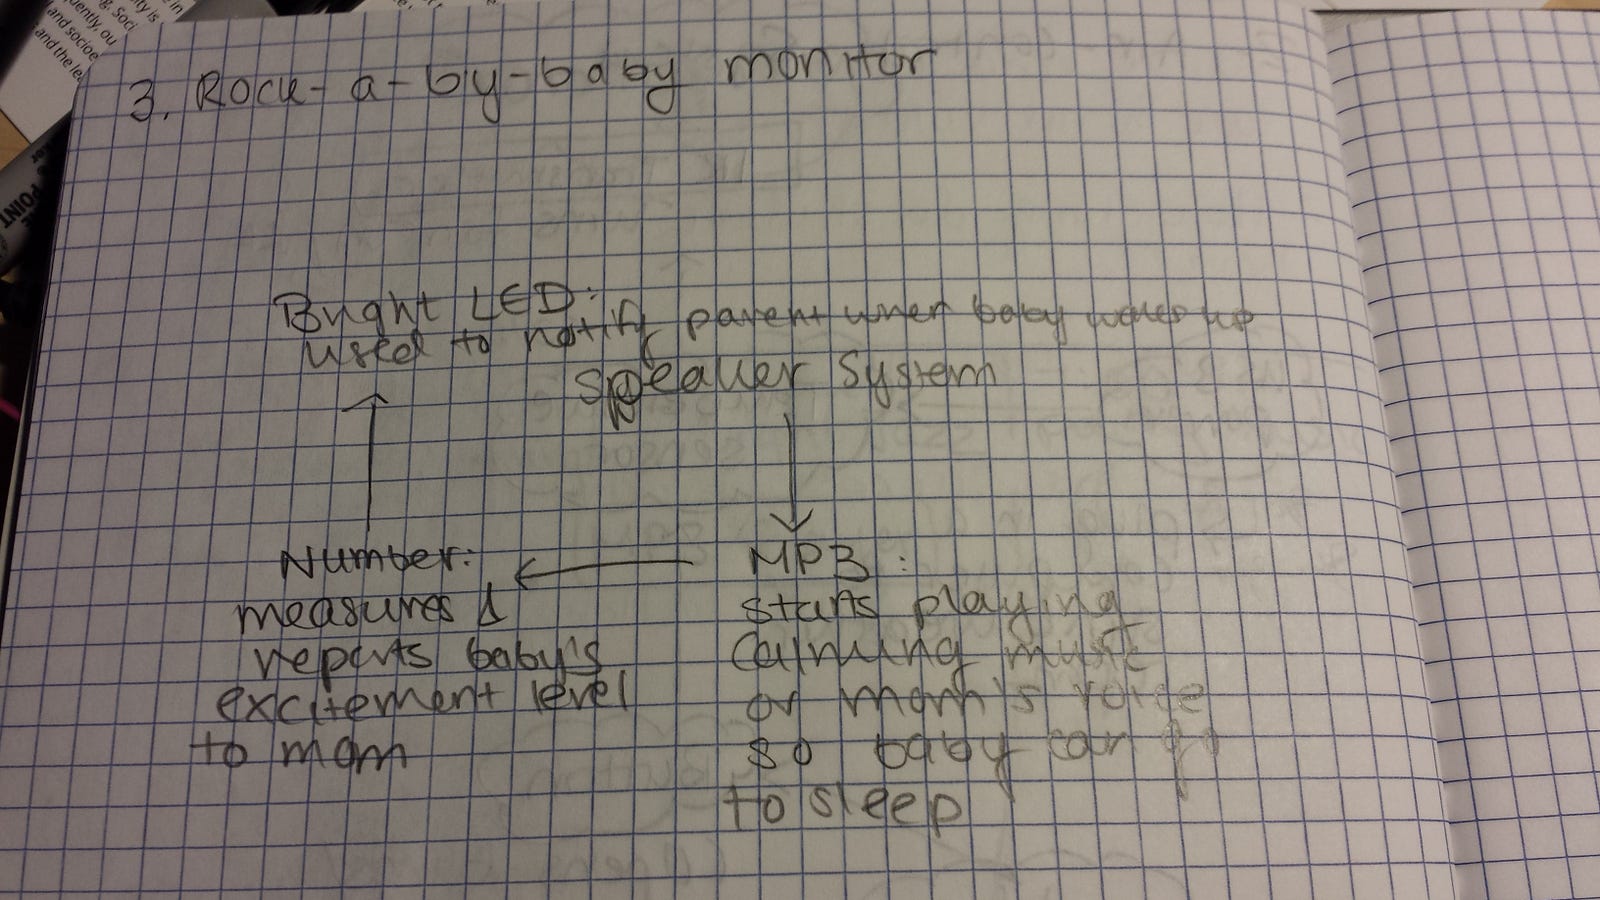 ity is
g. Soci
quently, ou
and socioe
and the le
POINT
3. Rock-a-by-baby monitor
Bright LED:
used to notify parent when baby wakes up
speaker system
Number:
measures &
reports baby's
excitement level
to mom
MP3:
starts playing
calming music
or mom's voice
so baby can go
to sleep